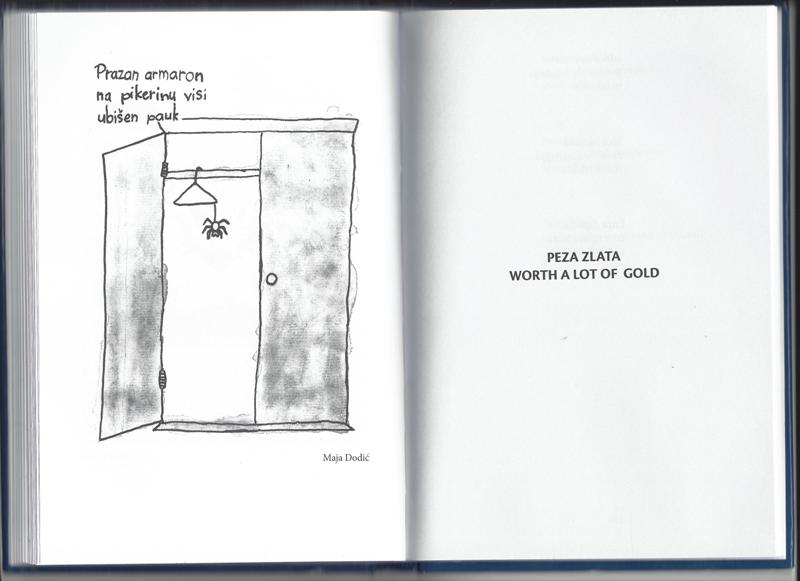 Prazan armaron
na pikerinu visi
ubišen pauk
Maja Dodić
PEZA ZLATA
WORTH A LOT OF GOLD